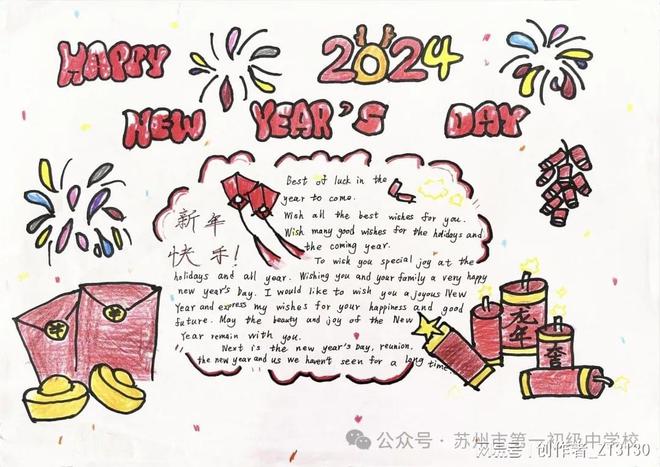 HAPPY 2024
NEW YEAR'S DAY
新年
快乐!
Best of luck in the
year to come.
Wish all the best wishes for you.
Wish many good wishes for the holidays and
the coming year.
To wish you special joy at the
holidays and all year. Wishing you and your family a very happy
new year's Day. I would like to wish you a joyous New
Year and express my wishes for your happiness and good
future. May the beauty and joy of the New
Year remain with you.
Next is the new year's Day, reunion,
the new year and us we haven't seen for a long time.
龙年
公众号·苏州市第一初级中学校
搜狐号@创作者_ZT3130